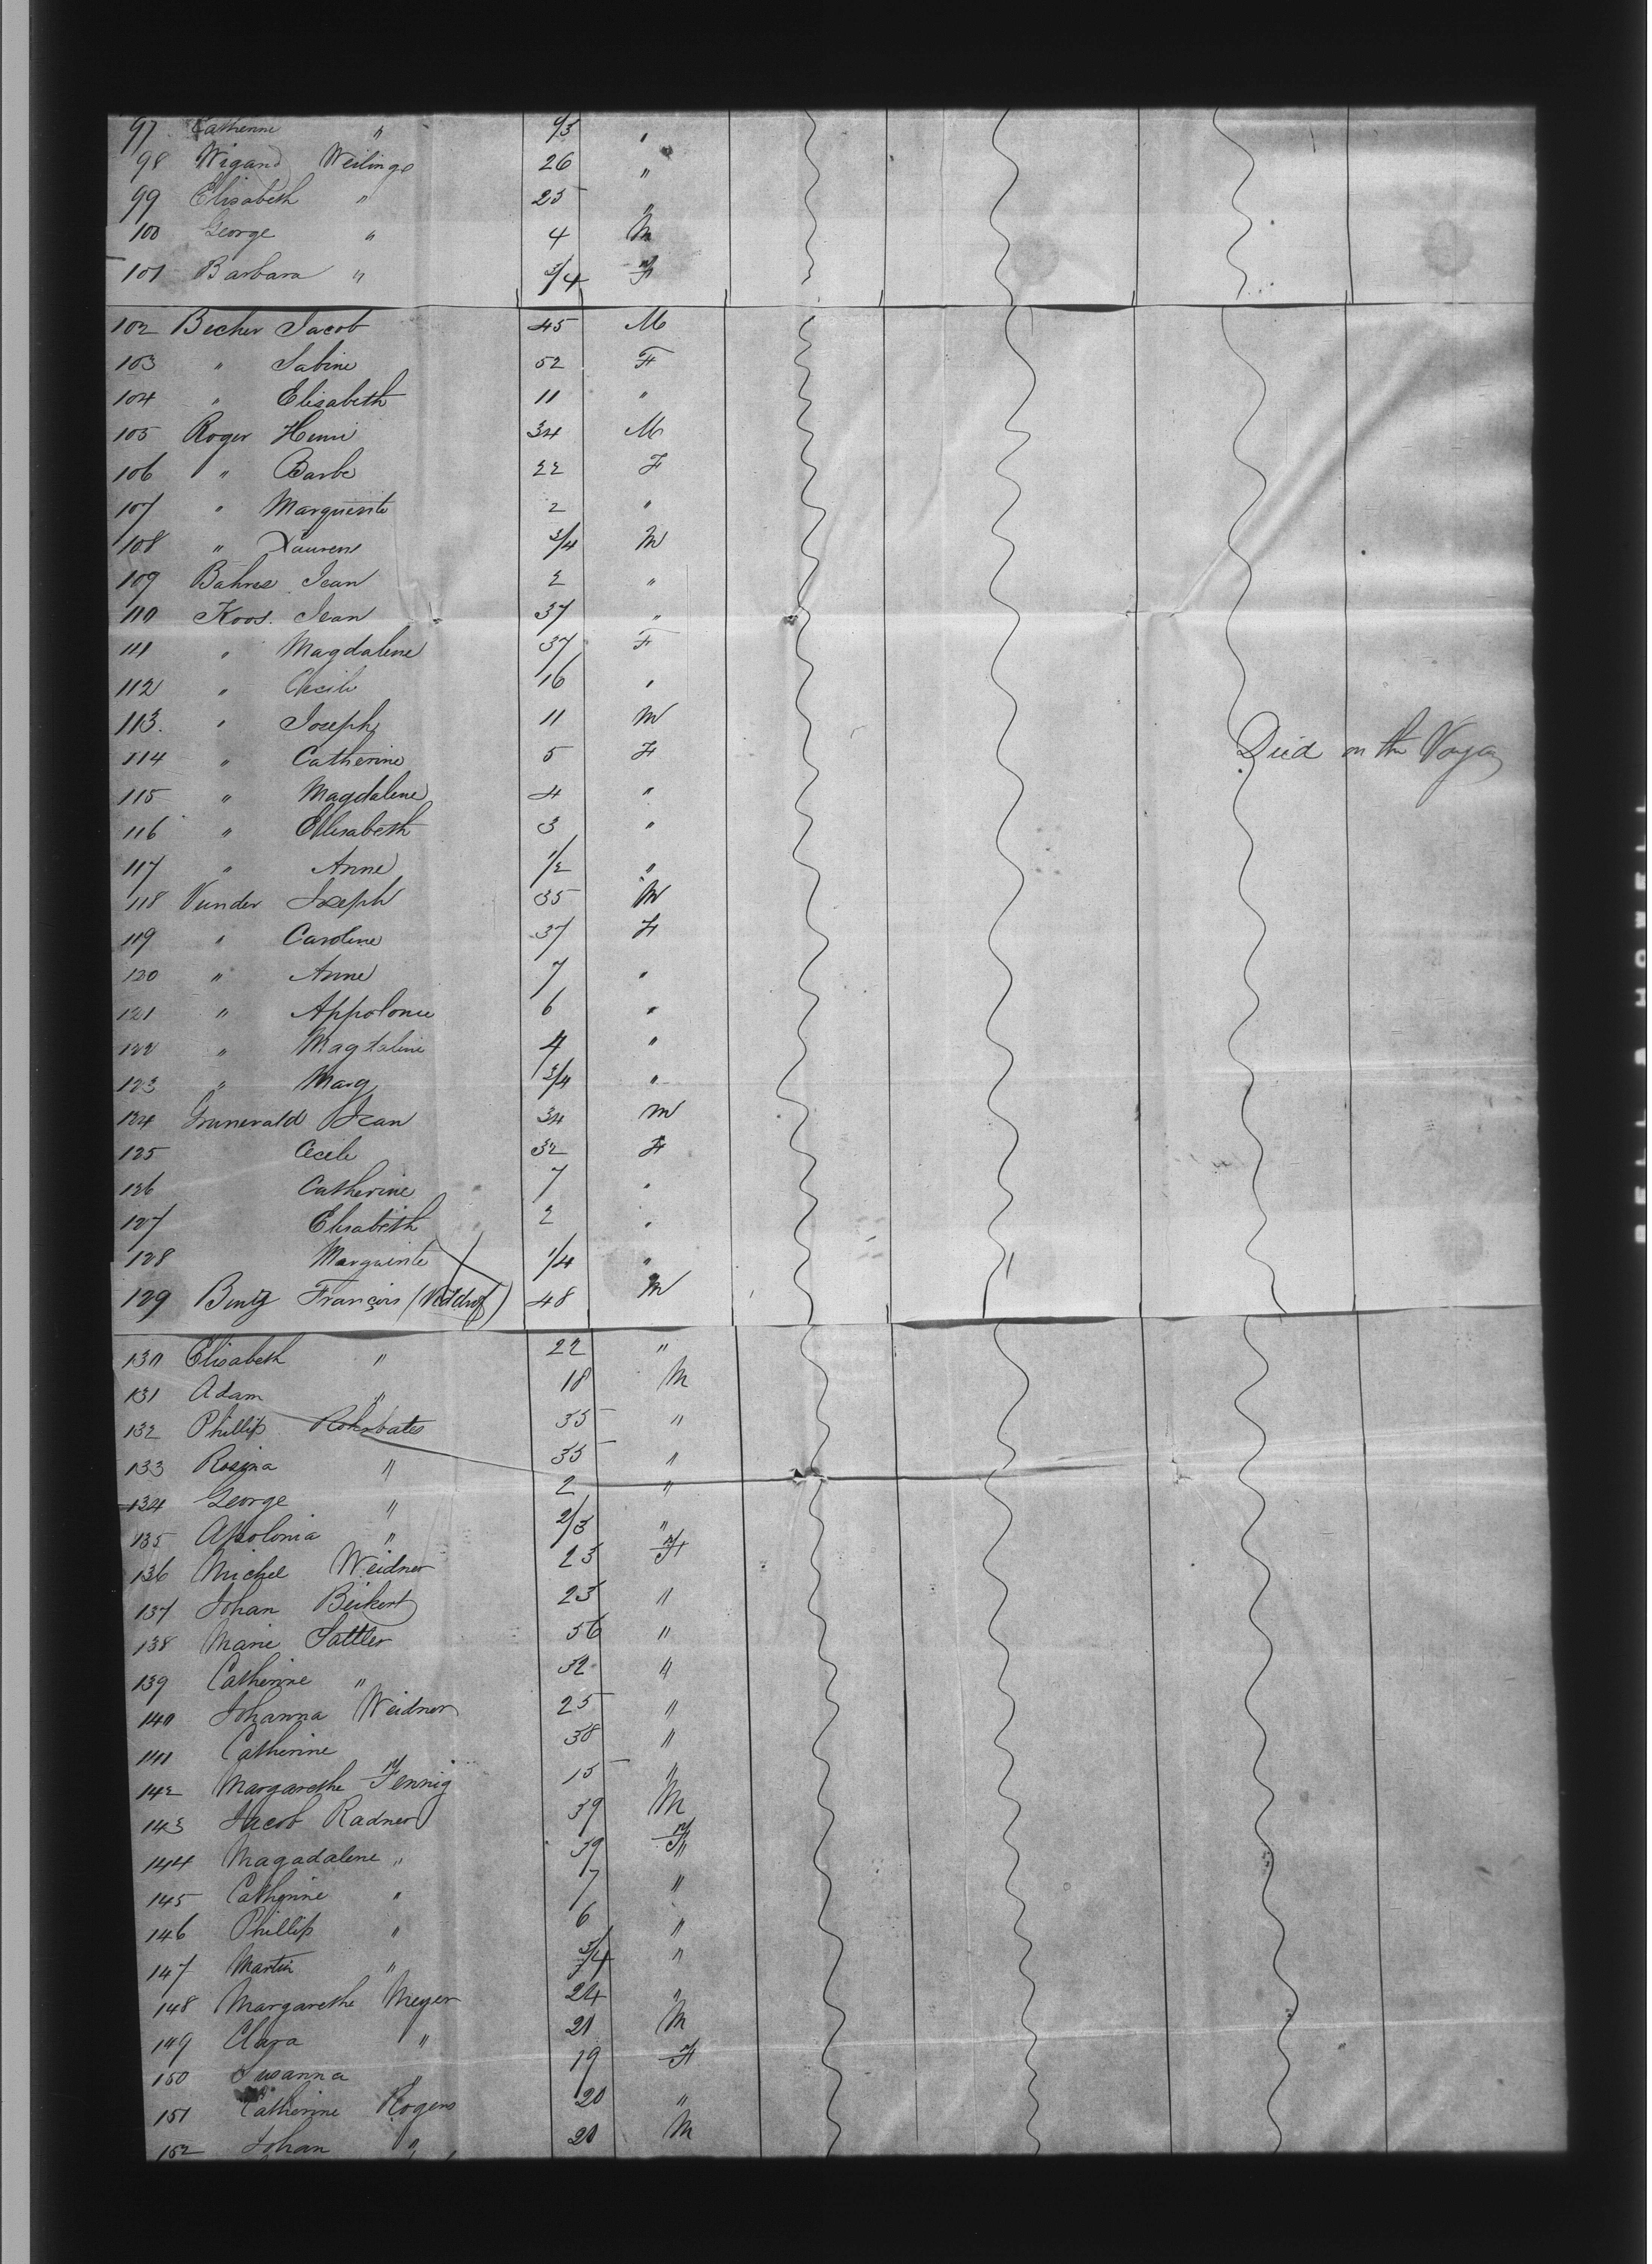 97 Catherine " 43 "
98 Wigand Weilings 26 "
99 Elisabeth " 25 "
100 George " 4 M
101 Barbara " 3/4 F
102 Becher Jacob 45 M
103 " Sabine 52 F
104 " Elisabeth 11 "
105 Roger Henri 34 M
106 " Barbe 22 F
107 " Marguerite 2 "
108 " Laurens 3/4 M
109 Bahns Jean 2 "
110 Koos. Jean 37 "
111 " Magdalene 37 F
112 " Cecile 16 "
113. " Joseph 11 M
114 " Catherine 5 F Died on the Voyage
115 " Magdalene 4 "
116 " Ellisabeth 3 "
117 " Anne 1/2 "
118 Vunder Joseph 35 M
119 " Caroline 37 F
120 " Anne 7 "
121 " Appolonie 6 "
122 " Magdaline 4 "
123 " Marg 3/4 "
124 Grunevald Jean 34 M
125 Cecile 32 F
126 Catherine 7 "
127 Elisabeth 2 "
128 Marguerite 1/4 "
129 Bentz François 48 M
130 Elisabeth " 22 "
131 Adam " 18 M
132 Phillip Rohrbates 35 "
133 Rosina " 35 "
134 George " 2 "
135 Apolonia " 2/3 "
136 Michel Weidner 23 F
137 Johan Beikert 23 "
138 Marie Sattler 56 "
139 Catherine " 32 "
140 Johanna Weidner 25 "
141 Catherine 38 "
142 Margarethe Fennig 15 "
143 Jacob Radner 39 M
144 Magadalene " 39 F
145 Catherine " 7 "
146 Phillip " 6 "
147 Martin " 3/4 "
148 Margarethe Meyer 24 "
149 Clara " 21 M
150 Susanna " 19 F
151 Catherine Rogers 20 "
152 Johan " 20 M